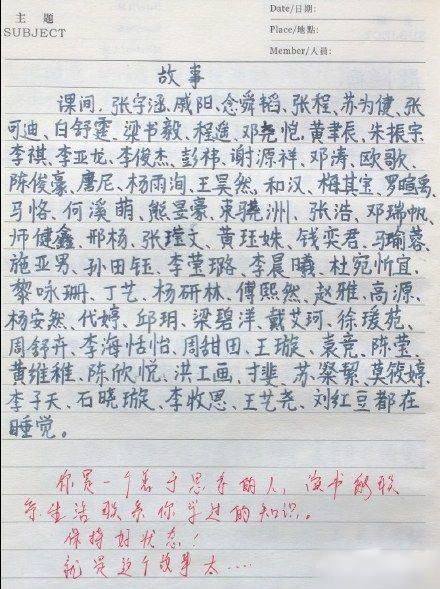 主 題
SUBJECT
Date/日期:
Place/地點:
Member/人員:
故事
课间，张宇涵、戚阳、念舜韬、张程、苏为健、张
可迪、白舒霆、梁书毅、程遥、邓尧恺、黄聿辰、朱振宗、
李祺、李亚龙、李俊杰、彭祎、谢源祥、邓涛、欧歌、
陈俊豪、唐尼、杨雨洵、王昊然、和汉、梅其宝、罗暄禹、
马恪、何溪萌、熊旻豪、束骁洲、张浩、邓瑞帆、
师健鑫、邢杨、张瑾文、黄珏姝、钱奕君、马瑜蓉、
施亚男、孙田钰、李莹璐、李晨曦、杜宛忻宜、
黎咏珊、丁艺、杨研林、傅熙然、赵雅、高源、
杨安然、代婷、邱玥、梁碧洋、戴艾珂、徐瑗苑、
周舒卉、李海恬怡、周甜田、王璇、袁竞、陈莹、
黄维稚、陈欣悦、洪工画、甘斐、苏粲絜、莫筱婷、
李子天、石晓璇、李牧思、王艺尧、刘红豆都在
睡觉。
你是一个善于思考的人，读书能联
系生活联系你学过的知识。
保持好状态！
就是这个故事太....